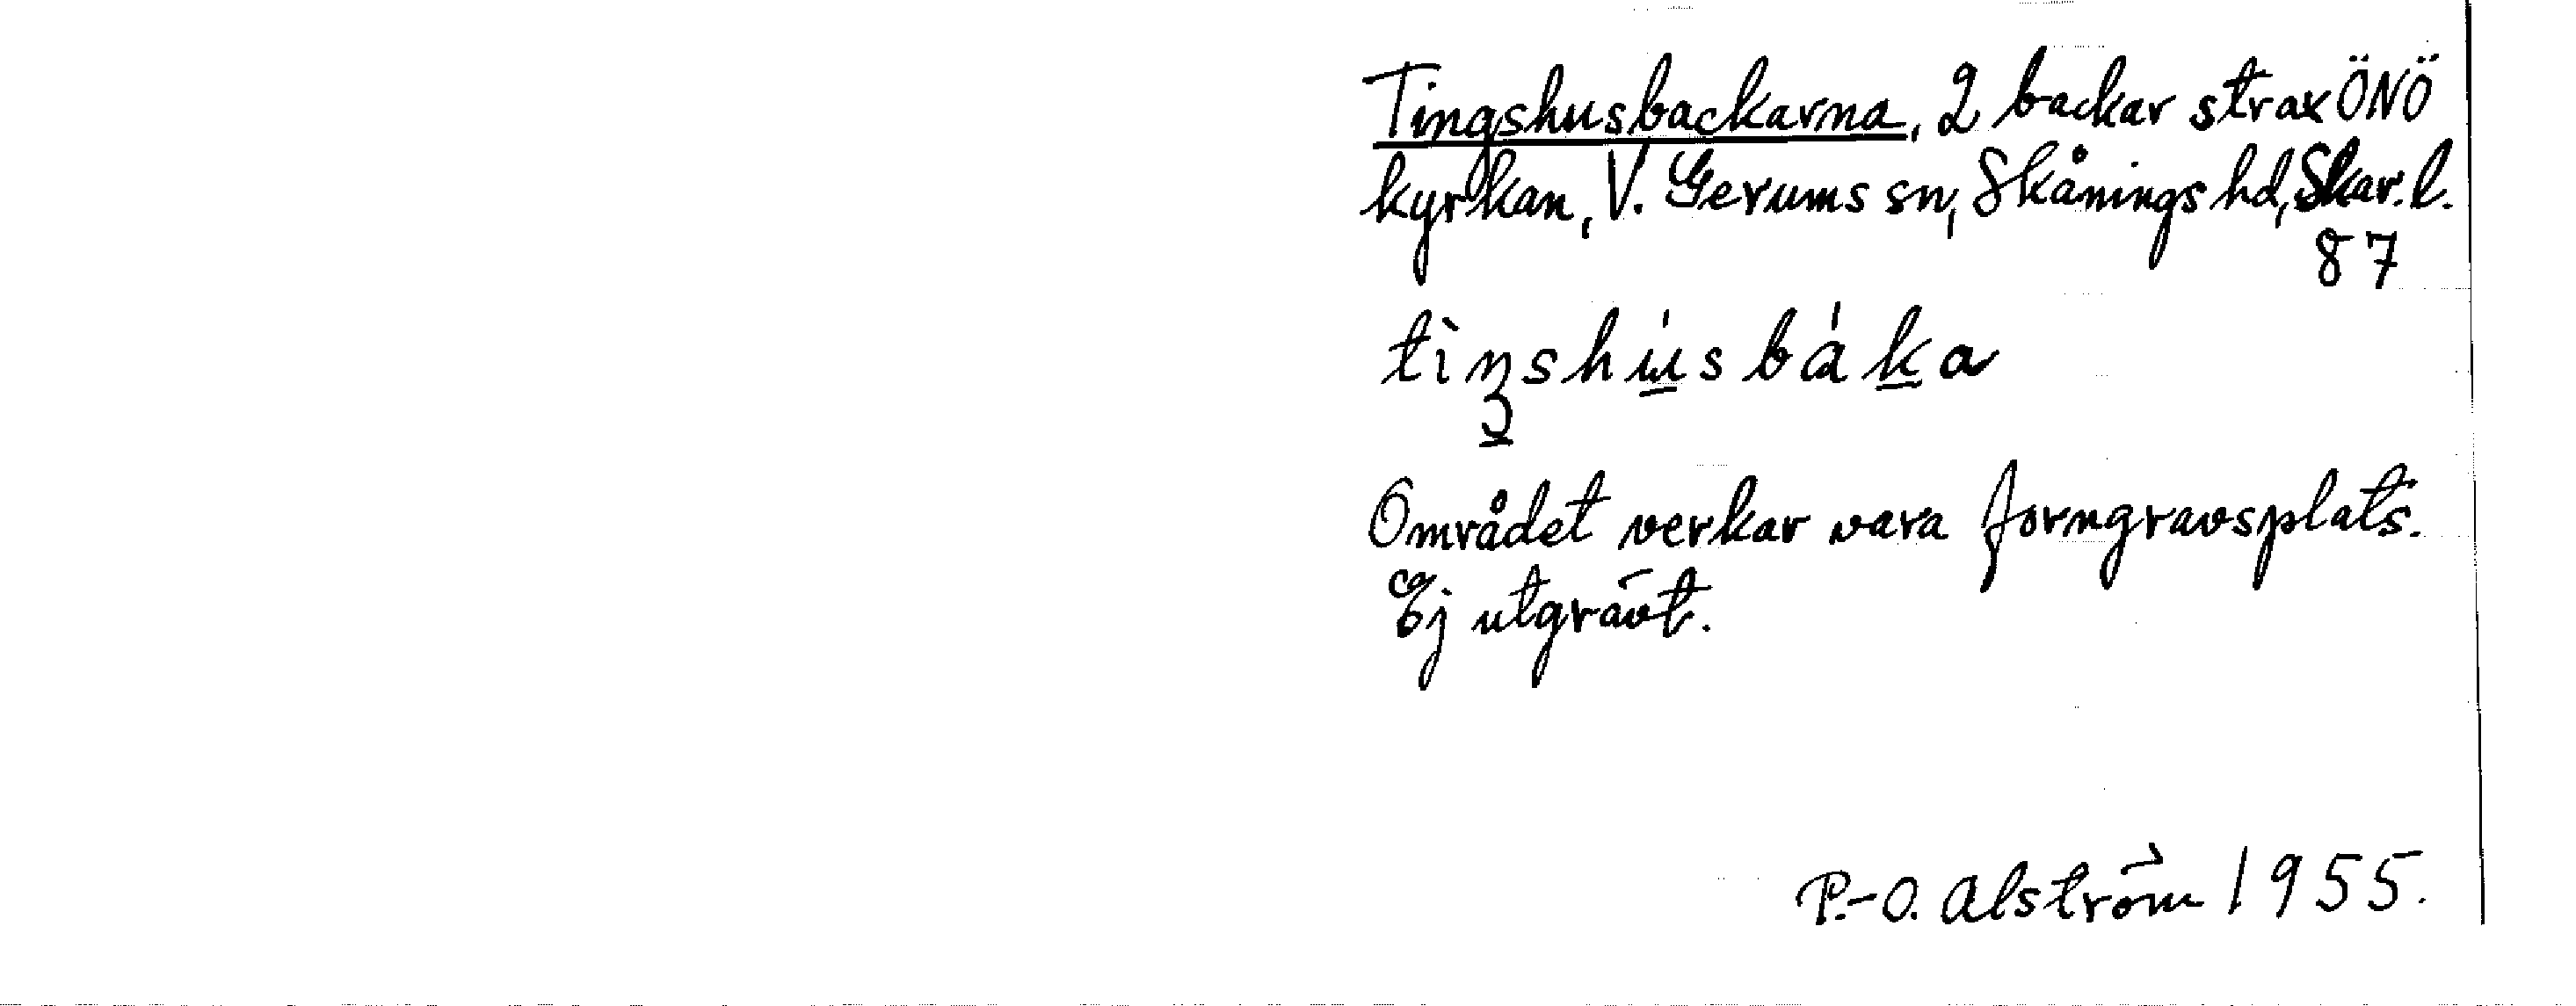 Tingshusbackarna, 2 backar strax ÖNÖ
kyrkan, V. Gerums sn, Skånings hd, Skar. l.
87
tìŋshu̍sba̍ka
Området verkar vara forngravsplats.
Ej utgrävt.
P.-O. Alström 1955.